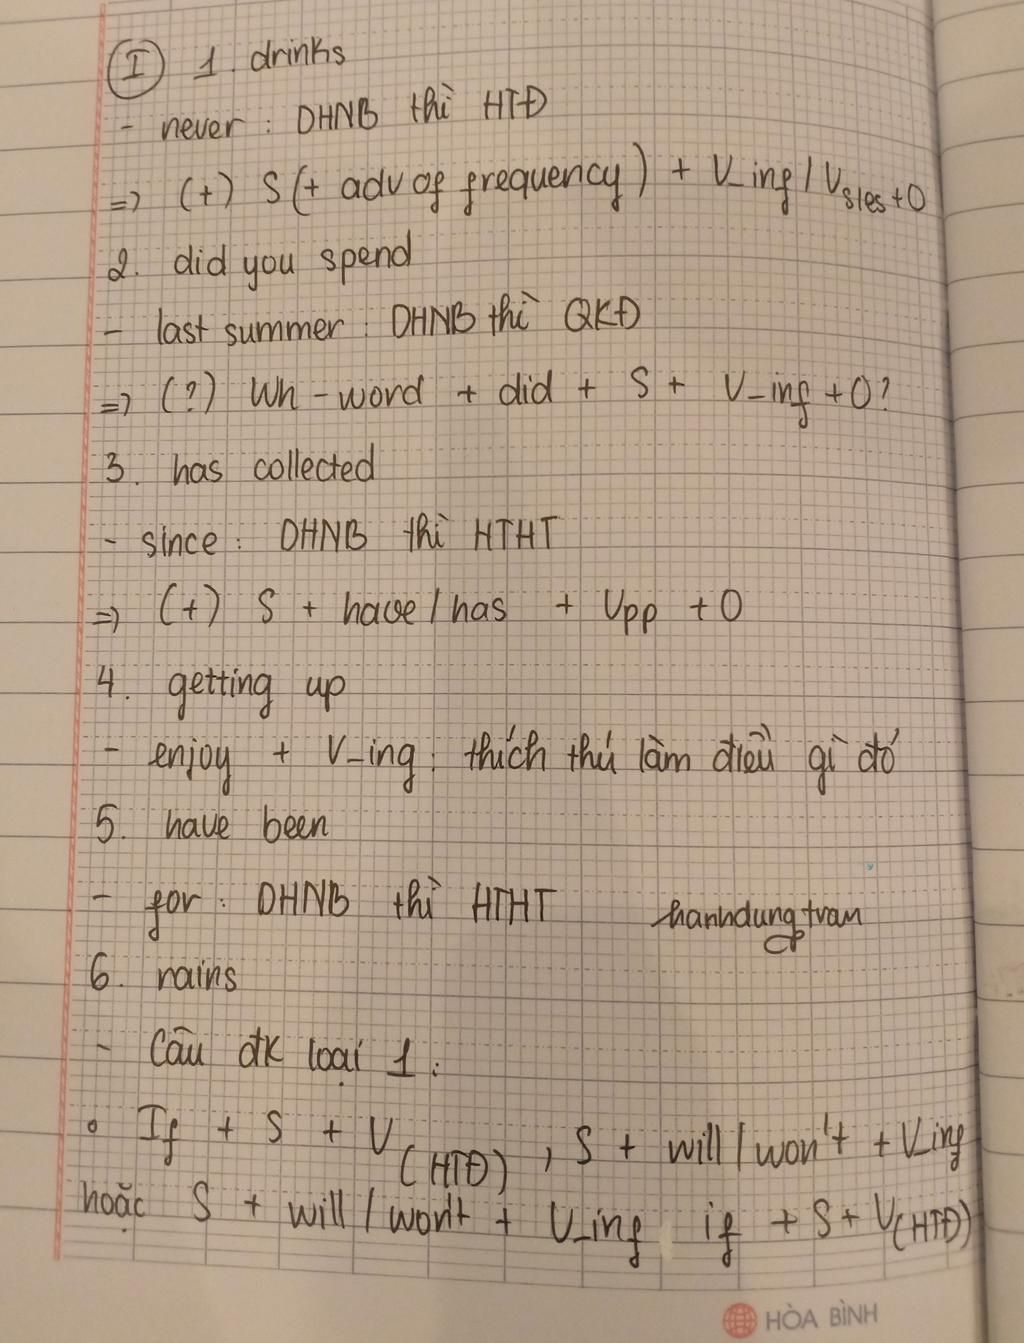 I 1. drinks
- never : DHNB thì HTĐ
=> (+) S (+ adv of frequency) + V_inf / Vs/es + O
2. did you spend
- last summer : DHNB thì QKĐ
=> (?) Wh - word + did + S + V_inf + O?
3. has collected
- since : DHNB thì HTHT
=> (+) S + have / has + Vpp + O
4. getting up
- enjoy + V_ing : thích thú làm điều gì đó
5. have been
- for : DHNB thì HTHT hanhdungtran
6. rains
- Câu đk loại 1 :
• If + S + V(HTĐ) , S + will / won't + V_inf
hoặc S + will / won't + V_inf if + S + V(HTĐ)
HÒA BÌNH